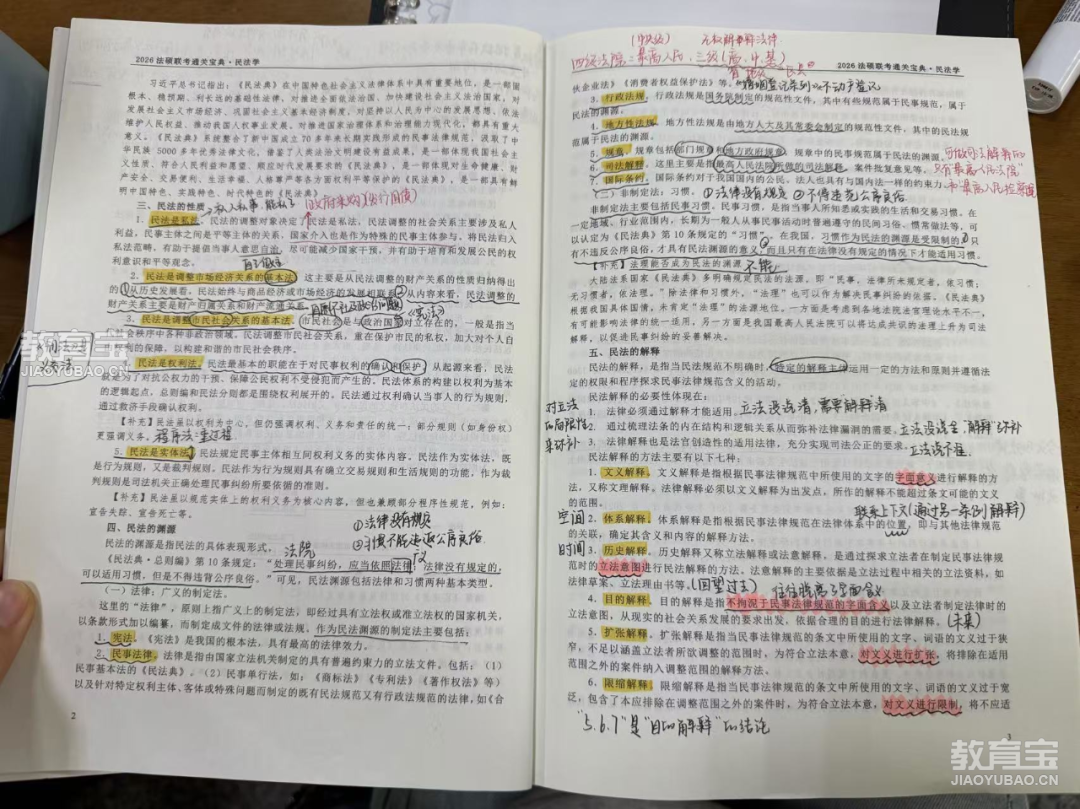 2026法硕联考通关宝典·民法学
习近平总书记指出：《民法典》在中国特色社会主义法律体系中具有重要地位，是一部固
根本、稳预期、利长远的基础性法律，对推进全面依法治国、加快建设社会主义法治国家，对
发展社会主义市场经济、巩固社会主义基本经济制度，对坚持以人民为中心的发展思想、依法
维护人民权益、推动我国人权事业发展，对推进国家治理体系和治理能力现代化，都具有重大
意义。《民法典》系统整合了新中国成立 70 多年来长期实践形成的民事法律规范，汲取了中
华民族 5000 多年优秀法律文化，借鉴了人类法治文明建设有益成果，是一部体现我国社会主
义性质、符合人民利益和愿望、顺应时代发展要求的《民法典》，是一部体现对生命健康、财
产安全、交易便利、生活幸福、人格尊严等各方面权利平等保护的《民法典》，是一部具有鲜
明中国特色、实践特色、时代特色的《民法典》。
三、民法的性质
1. 民法是私法。民法的调整对象决定了民法是私法。民法的社会关系主要涉及私人
利益。民事主体之间是平等主体的关系，国家介入也是作为特殊的民事主体参与。将民法归入
私法范畴，有助于提倡当事人意思自治，尽可能减少国家干预，并有助于培育和发展公民的权
利意识和平等观念。
自己做主
2. 民法是调整市场经济关系的基本法。这主要是从民法调整的财产关系的性质归纳得出
的①从历史发展看，民法始终与商品经济或市场经济的发展相联系②从内容来看，民法调整的
财产关系主要是财产归属关系和财产流通关系。
3. 民法是调整市民社会关系的基本法。市民社会是与政治国家对立存在的，一般是指当
社会秩序中各种非政治领域。民法调整市民社会关系，重在保护市民的私权，加大对个人自
利的保障，以构建和谐的市民社会秩序。
民法是权利法。民法最基本的职能在于对民事权利的确认和保护。从起源来看，民法
就是为了对抗公权力的干预、保障公民权利不受侵犯而产生的。民法体系的构建以权利为基本
的逻辑起点，总则编和民法分则都是围绕权利展开的。民法通过权利确认当事人的行为规则，
通过救济手段确认权利。
【补充】民法虽以权利为中心，但仍强调权利、义务和责任的统一；部分规则（如身份权）
更强调义务。
程序法：重过程
5. 民法是实体法。民法规定民事主体相互间权利义务的实体内容。民法作为实体法，既
是行为规则，又是裁判规则。民法作为行为规则具有确立交易规则和生活规则的功能，作为裁
判规则是司法机关正确处理民事纠纷所要依循的准则。
【补充】民法虽以规范实体上的权利义务为核心内容，但也兼顾部分程序性规范，例如：
宣告失踪、宣告死亡等。
四、民法的渊源
①法律没有规定
②习惯不能违返公序良俗
民法的渊源是指民法的具体表现形式。
法院
《民法典·总则编》第 10 条规定：“处理民事纠纷，应当依照法律；法律没有规定的，
可以适用习惯，但是不得违背公序良俗。”可见，民法渊源包括法律和习惯两种基本类型。
（一）法律：广义的制定法。
这里的“法律”，原则上指广义上的制定法，即经过具有立法权或准立法权的国家机关，
以条款形式加以编纂，而制定成文件的法律或法规。作为民法渊源的制定法主要包括：
1. 宪法。《宪法》是我国的根本法，具有最高的法律效力。
2. 民事法律。法律是指由国家立法机关制定的具有普遍约束力的立法文件，包括：（1）
民事基本法的《民法典》。（2）民事单行法，如：《商标法》《专利法》《著作权法》等）
以及针对特定权利主体、客体或特殊问题而制定的既有民法规范又有行政法规范的法律，如《合
2
无权解释法律
四级法院：最高人民，三级（高、中、基）
2026法硕联考通关宝典·民法学
伙企业法》《消费者权益保护法》等。
3. 行政法规。行政法规是国务院制定的规范性文件，其中有些规范属于民事规范，属于
民法的渊源。
4. 地方性法规。地方性法规是由地方人大及其常委会制定的规范性文件，其中的民法规
范属于民法的渊源。
5. 规章。规章包括部门规章和地方政府规章。规章中的民事规范属于民法的渊源。
6. 司法解释。这里主要是指最高人民法院所做的司法解释、案件批复意见等。
7. 国际条约。国际条约对于我国国内的公民、法人也具有与国内法一样的约束力。
（二）非制定法：习惯。
①法律没有规定 ②不得违背公序良俗
非制定法主要包括民事习惯。民事习惯，是指当事人所知悉或实践的生活和交易习惯。在
一定地域、行业范围内，长期为一般人从事民事活动时普遍遵守的民间习俗、惯常做法等，可
以认定为《民法典》第 10 条规定的“习惯”。在我国，习惯作为民法的渊源是受限制的①只
有不违反公序良俗，才具有民法渊源的意义②而且只有在法律没有规定的情况下才能适用习惯。
【补充】法理能否成为民法的渊源
不能
大陆法系国家《民法典》多明确规定民法的法源，即“民事，法律所未规定者，依习惯；
无习惯者，依法理。”除法律和习惯外，“法理”也可以作为解决民事纠纷的依据。《民法典》
根据我国具体国情，未肯定“法理”的法源地位，一方面是考虑到各地法院法官理论水平不一，
有可能影响法律的统一适用，另一方面是我国最高人民法院可以将达成共识的法理上升为司法
解释，以促进民事纠纷的妥善解决。
五、民法的解释
民法的解释，是指当民法规范不明确时，特定的解释主体运用一定的方法和原则并遵循法
定的权限和程序探求民事法律规范含义的活动。
民法解释的必要性体现在：
对立法
的局限性
来弥补
1. 法律必须通过解释才能适用。
立法没说清，需要解释清
2. 通过梳理法条的内在结构和逻辑关系从而弥补法律漏洞的需要。
立法没说全，解释弥补
3. 法律解释也是法官创造性的适用法律，充分实现司法公正的要求。
立法说不准
民法解释的方法主要有以下七种：
1. 文义解释。文义解释是指根据民事法律规范中所使用的文字的字面意义进行解释的方
法，又称文理解释。法律解释必须以文义解释为出发点，所作的解释不能超过条文可能的文义
的范围。
联系上下文（通过另一条例解释）
空间
2. 体系解释。体系解释是指根据民事法律规范在法律体系中的位置，即与其他法律规范
的关联，确定其含义和内容的解释方法。
时间
3. 历史解释。历史解释又称立法解释或法意解释，是通过探求立法者在制定民事法律规
范时的立法意图进行民法解释的方法。法意解释的主要依据是立法过程中相关的立法资料，如
法律草案、立法理由书等。
（回望过去）
往往脱离了字面含义
4. 目的解释。目的解释是指不拘泥于民事法律规范的字面含义以及立法者制定法律时的
立法意图，从现实的社会关系发展的要求出发，依据合理的目的进行法律解释。
（未来）
5. 扩张解释。扩张解释是指当民事法律规范的条文中所使用的文字、词语的文义过于狭
窄，不足以涵盖立法者所欲调整的范围时，为符合立法本意，对文义进行扩张，将排除在适用
范围之外的案件纳入调整范围的解释方法。
6. 限缩解释。限缩解释是指当民事法律规范的条文中所使用的文字、词语的文义过于宽
泛，包含了本应排除在调整范围之外的案件时，为符合立法本意，对文义进行限制，将不应适
“5.6.7”是“目的解释”的结论
3
教育宝
JIAOYUBAO.CN
教育宝
JIAOYUBAO.CN